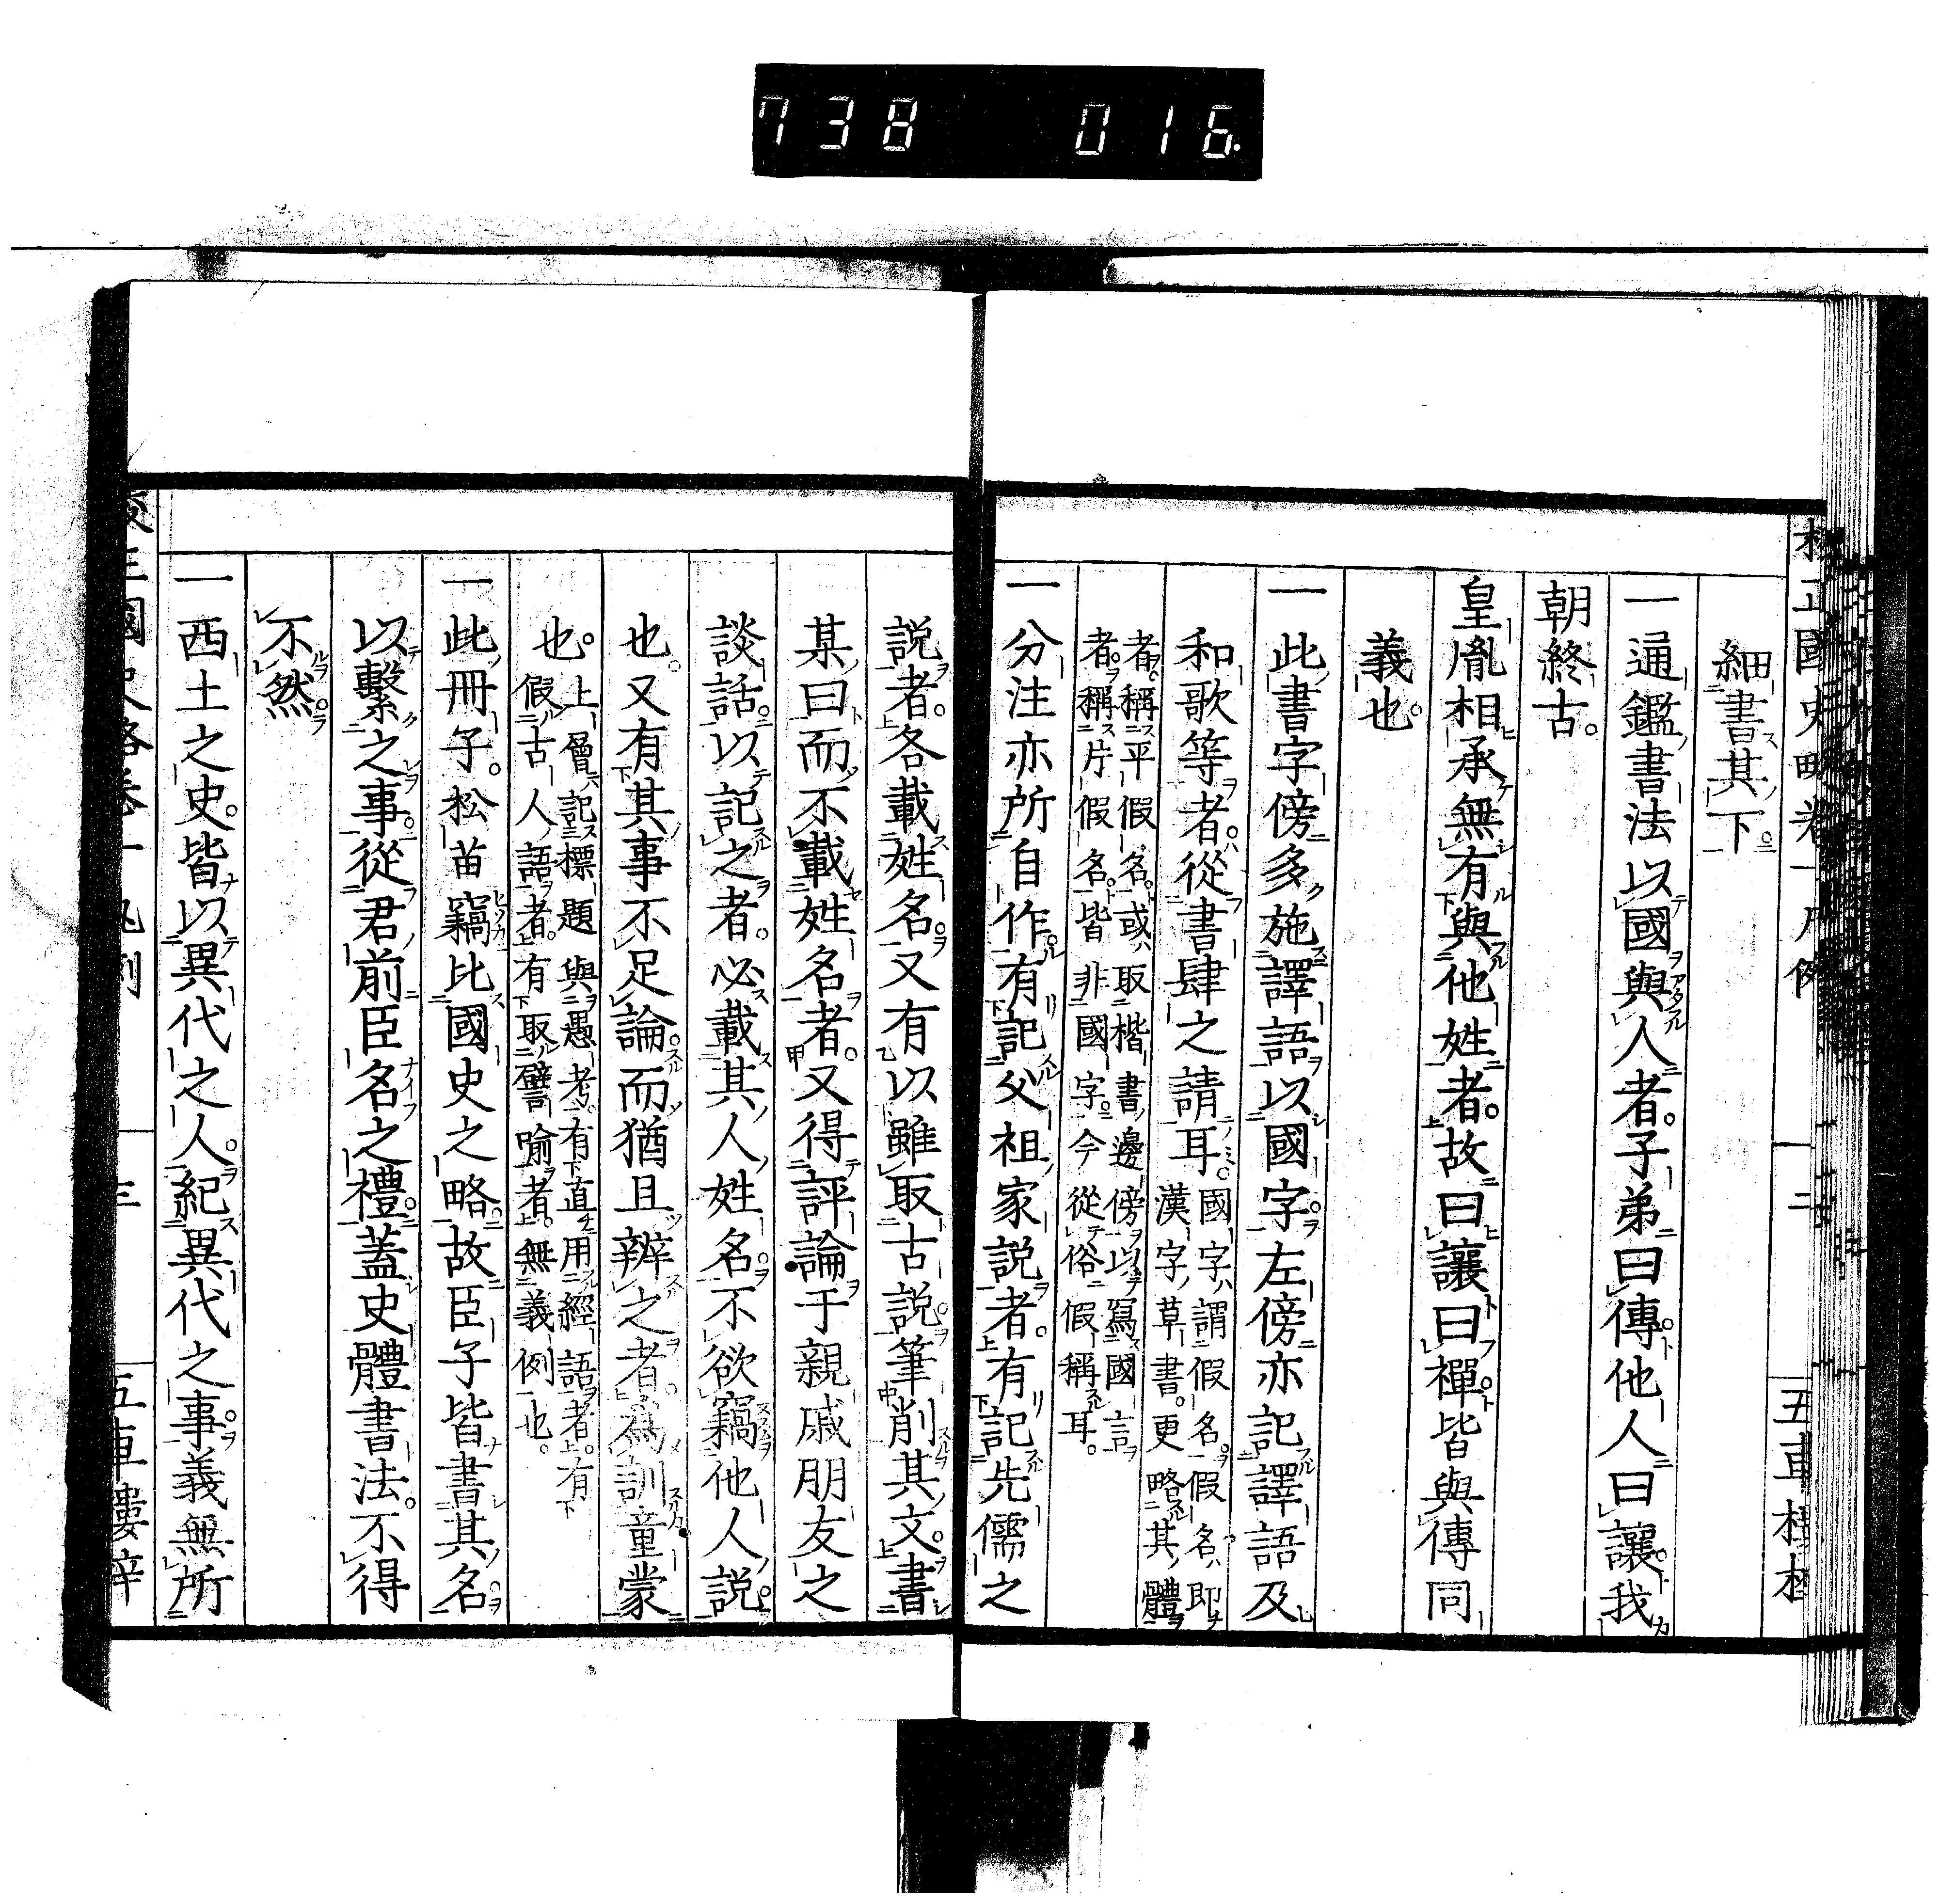 738 016
細書其下
一通鑑書法以國與人者子弟曰傳他人曰讓我
朝終古
皇胤相承無有與他姓者故曰讓曰禪皆與傳同
義也
一此書字傍多施譯語以國字左傍亦記譯語及
和歌等者從書肆之請耳國字謂假名假名即
漢字草書更略其體
者稱平假名或取楷書邊傍以寫國言
者稱片假名皆非國字今從俗假稱耳
一分注亦所自作有記父祖家説者有記先儒之
説者各載姓名又有以雖取古説筆削其文書
某曰而不載姓名者又得評論于親戚朋友之
談話以記之者必載其人姓名不欲竊他人説
也又有其事不足論而猶且辨之者為訓童蒙
也上層記標題與愚考有直用經語者有
假古人語者有取譬喻者無義例也
一此冊子松苗竊比國史之略故臣子皆書其名
以繫之事從君前臣名之禮蓋史體書法不得
不然
一西土之史皆以異代之人紀異代之事義無所